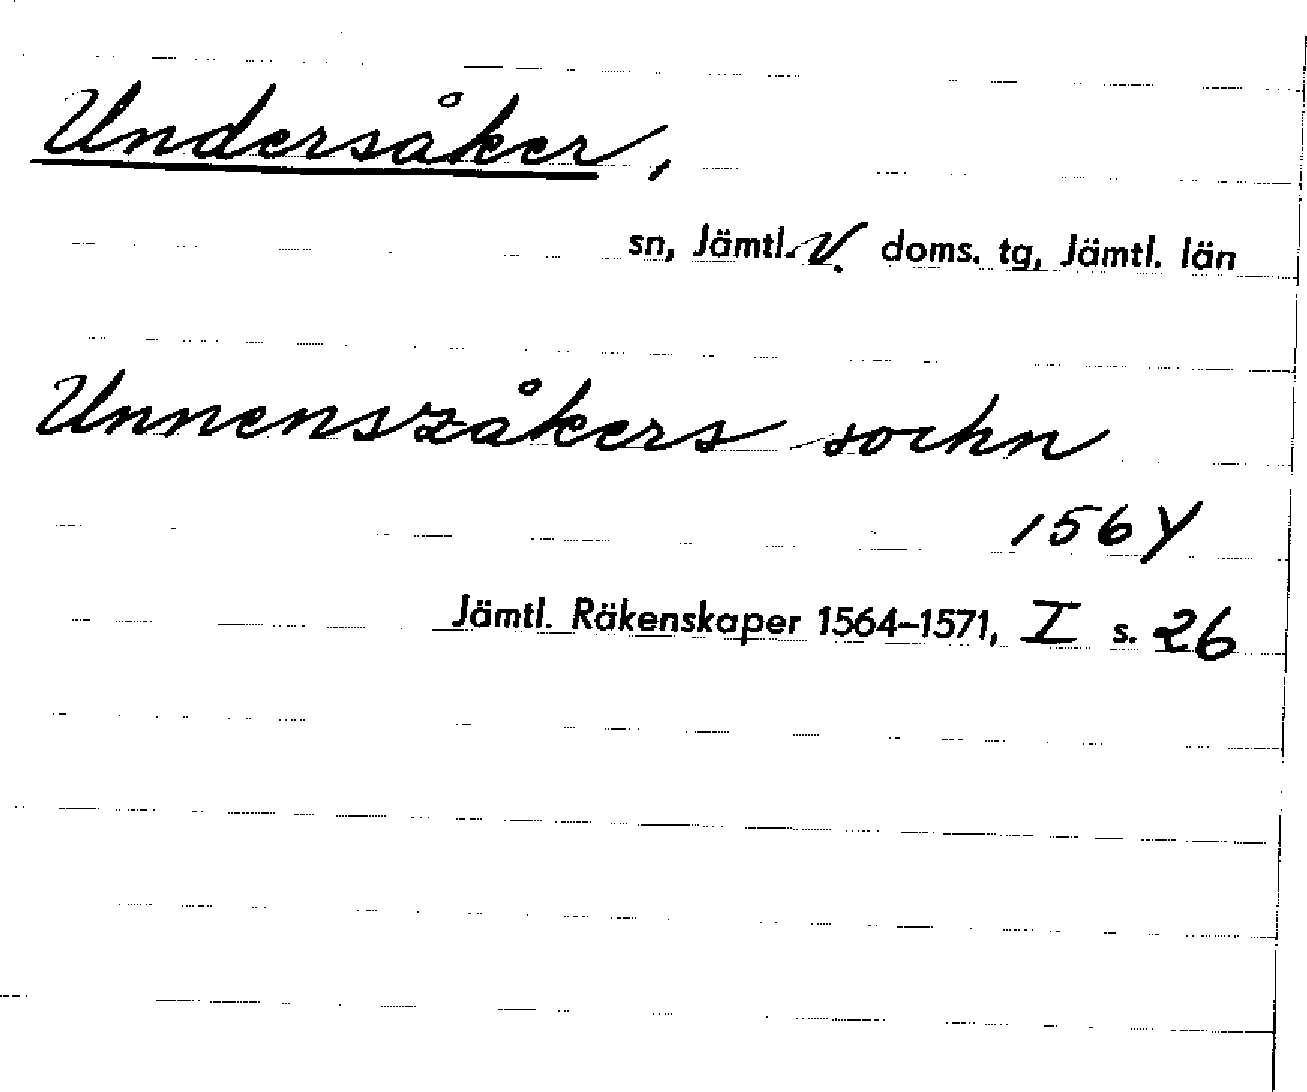 Undersåker,
sn, Jämtl. V. doms. tg, Jämtl. län
Unnenszåkers sochn
1564
Jämtl. Räkenskaper 1564–1571, I s. 26